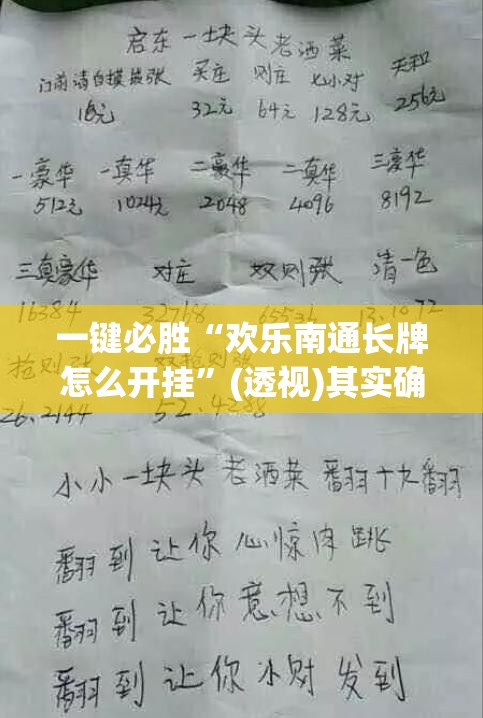 启东一块头老洒菜
门前清自摸拔张 买庄 则庄 七小对 天和
16元 32元 64元 128元 256元
一豪华 一真华 二豪华 二真华 三豪华
512元 1024元 2048 4096 8192
三真豪华 对庄 双则张 清一色
16384 32768 65536 13.1072
一键必胜“欢乐南通长牌
怎么开挂”(透视)其实确
抢则张
26.2144
小小一块头 老洒菜 翻十九翻
翻到让你心惊肉跳
翻到让你意想不到
翻到让你小财发到